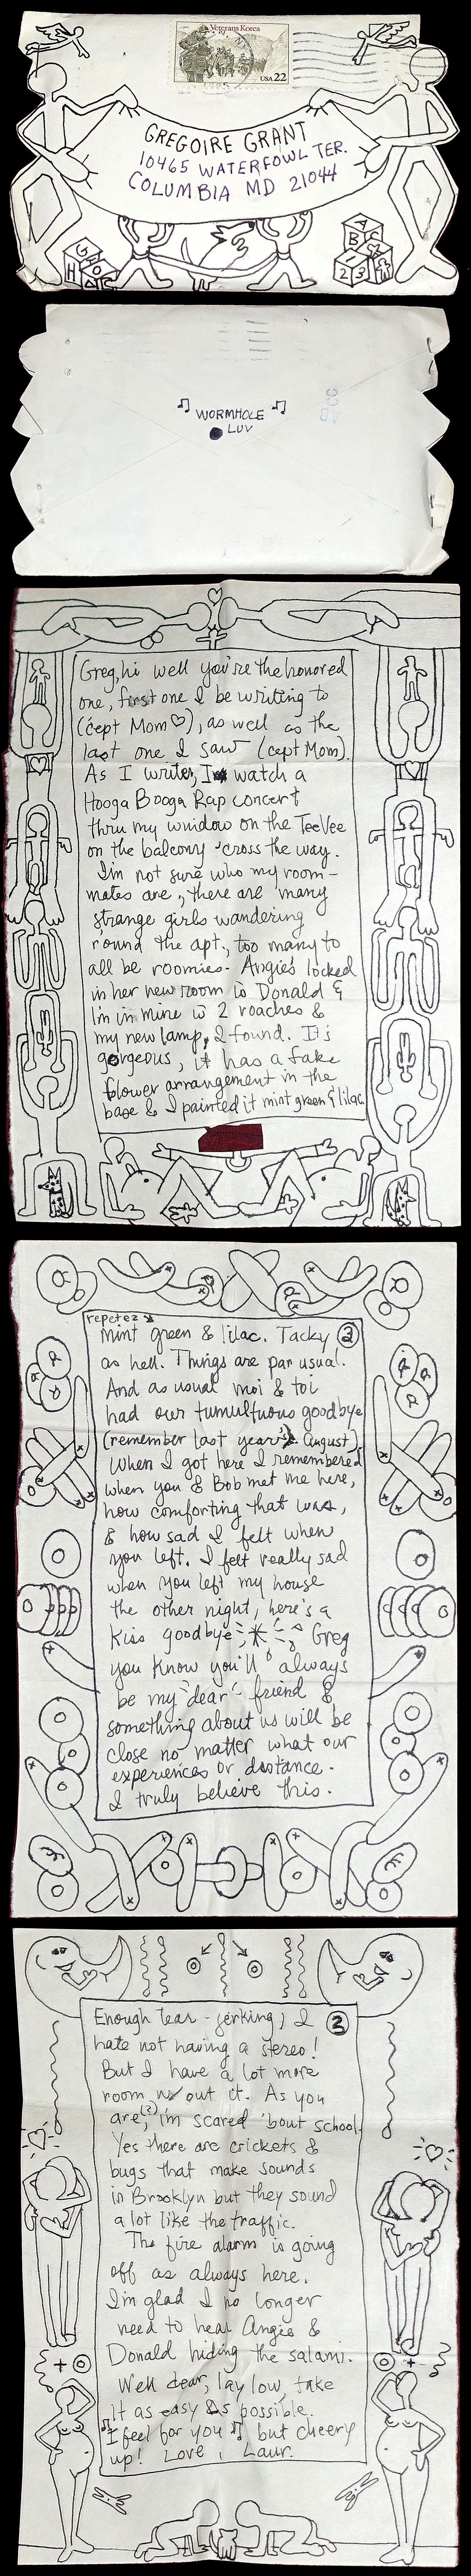 Veterans Korea
USA 22
GREGOIRE GRANT
10465 WATERFOWL TER.
COLUMBIA MD 21044
G
H
A
B C
1 2 3
♫ WORMHOLE ♫
LUV
Greg, hi well you're the honored
one, first one I be writing to
('cept Mom ♡), as well as the
last one I saw (cept Mom).
As I write, I watch a
Hooga Booga Rap concert
thru my window on the TeeVee
on the balcony 'cross the way.
I'm not sure who my room-
mates are, there are many
strange girls wandering
round the apt., too many to
all be roomies. Angie's locked
in her new room w Donald &
I'm in mine w 2 roaches &
my new lamp, I found. It's
gorgeous, it has a fake
flower arrangement in the
base & I painted it mint green & lilac.
repetez
mint green & lilac. Tacky 2
as hell. Things are par usual.
And as usual moi & toi
had our tumultuous goodbye
(remember last year's August)
When I got here I remembered
when you & Bob met me here,
how comforting that was,
& how sad I felt when
you left. I felt really sad
when you left my house
the other night, here's a
kiss goodbye Greg
you know you'll always
be my "dear" friend &
something about us will be
close no matter what our
experiences or distance.
I truly believe this.
Enough tear-jerking, I 3
hate not having a stereo!
But I have a lot more
room w/out it. As you
are(?), i'm scared 'bout school.
Yes there are crickets &
bugs that make sounds
in Brooklyn but they sound
a lot like the traffic.
The fire alarm is going
off as always here.
I'm glad I no longer
need to hear Angie &
Donald hiding the salami.
Well dear, lay low, take
it as easy as possible.
♫ I feel for you ♫, but cheery
up! Love, Laur.